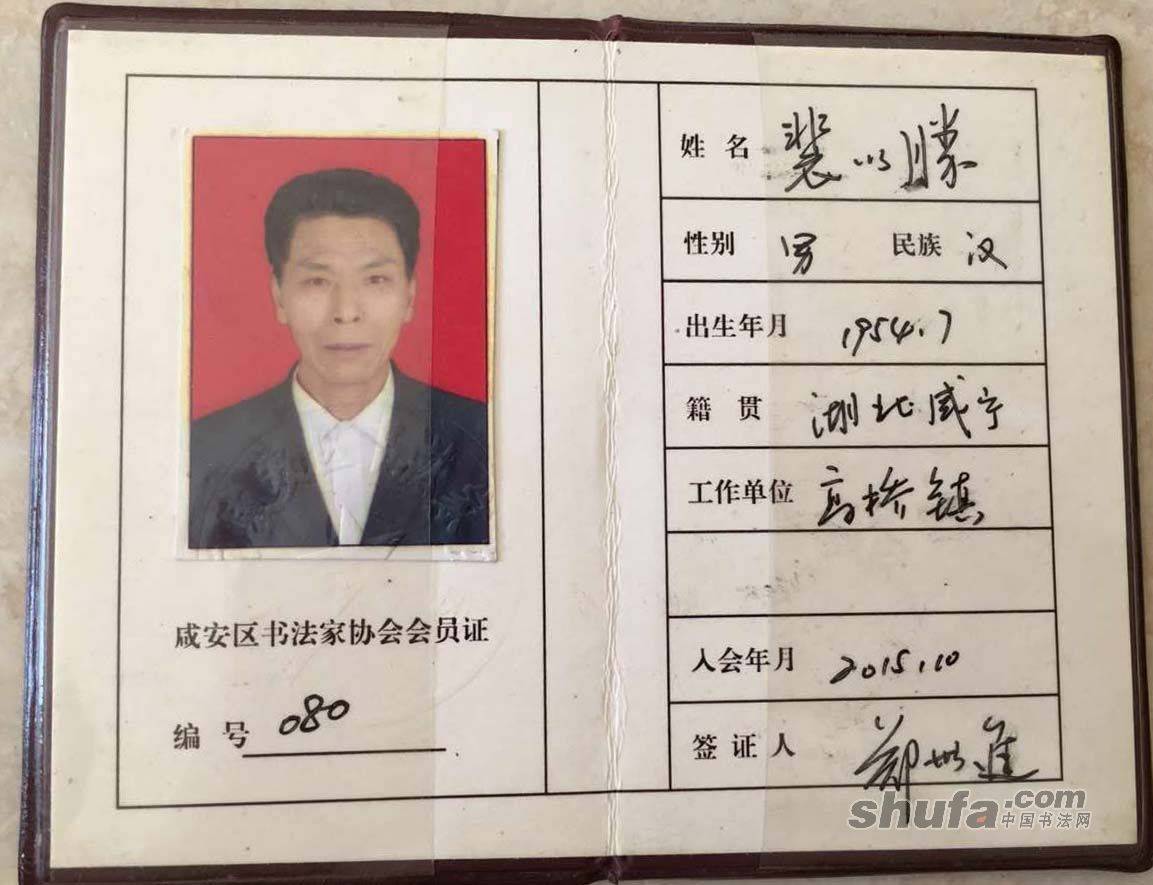 咸安区书法家协会会员证
编 号 080
姓 名 裴以滕
性别 男 民族 汉
出生年月 1954.7
籍 贯 湖北咸宁
工作单位 高桥镇
入会年月 2015.10
签 证 人 郑
shufa.com
中国书法网